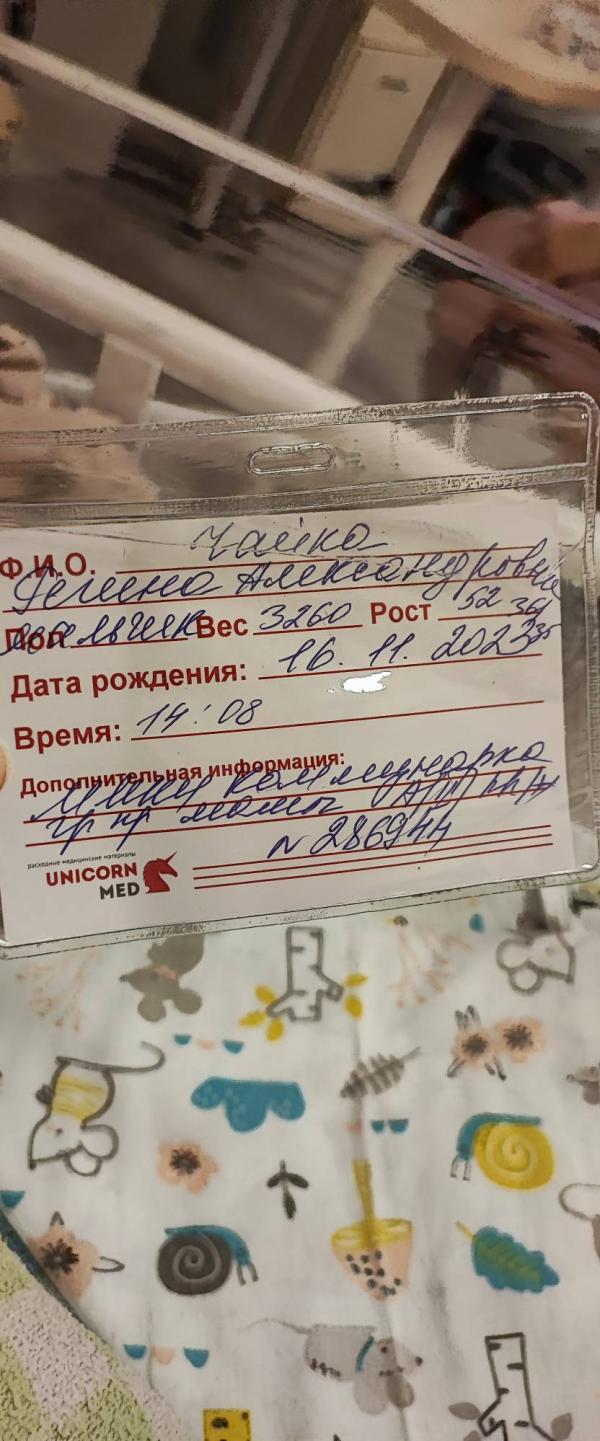 Ф.И.О. Чайка
Регина Александровна
Пол мальчик Вес 3260 Рост 52 36/35
Дата рождения: 16. 11. 2023
Время: 14:08
Дополнительная информация:
ММКЦ Коммунарка
гр кр мамы
N 286944
расходные медицинские материалы
UNICORN
MED